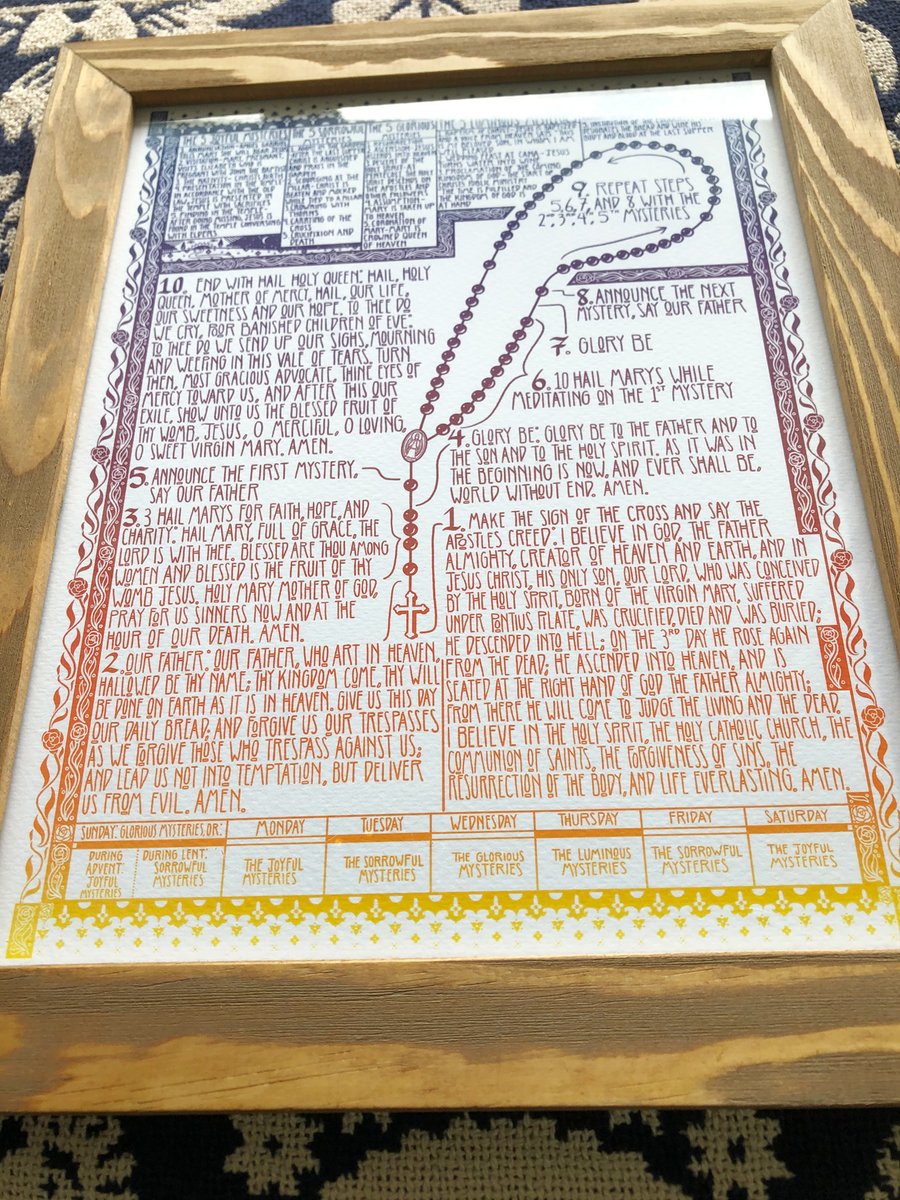 PREGNANT WITH JOHN THE BAPTIST
4. PRESENTATION IN THE
5. FINDING IN THE TEMPLE
IN THE TEMPLE CONVERSING
WITH ELDERS
THE 5 SORROWFUL
CROWNING WITH
THORNS
4. CARRYING OF THE
CROSS
5. CRUCIFIXION AND
DEATH
THE 5 GLORIOUS
THE APOSTLES
AND
ASSUMPTION -
MARY IS TAKEN UP
TO HEAVEN
5. CORONATION OF
MARY-MARY IS
CROWNED QUEEN
OF HEAVEN
THE 5 LUMINOUS
CANA - JESUS
HAND
THE BREAD AND WINE HIS
BODY AND BLOOD AT THE LAST SUPPER
9. REPEAT STEPS
5,6,7, AND 8 WITH THE
2ND, 3RD, 4TH, 5TH MYSTERIES
10. END WITH HAIL HOLY QUEEN: HAIL, HOLY
QUEEN, MOTHER OF MERCY, HAIL, OUR LIFE,
OUR SWEETNESS AND OUR HOPE. TO THEE DO
WE CRY, POOR BANISHED CHILDREN OF EVE:
TO THEE DO WE SEND UP OUR SIGHS, MOURNING
AND WEEPING IN THIS VALE OF TEARS. TURN
THEN, MOST GRACIOUS ADVOCATE, THINE EYES OF
MERCY TOWARD US, AND AFTER THIS OUR
EXILE, SHOW UNTO US THE BLESSED FRUIT OF
THY WOMB, JESUS, O MERCIFUL, O LOVING,
O SWEET VIRGIN MARY. AMEN.
8. ANNOUNCE THE NEXT
MYSTERY, SAY OUR FATHER
7. GLORY BE
6. 10 HAIL MARYS WHILE
MEDITATING ON THE 1ST MYSTERY
5. ANNOUNCE THE FIRST MYSTERY,
SAY OUR FATHER
4. GLORY BE: GLORY BE TO THE FATHER AND TO
THE SON AND TO THE HOLY SPIRIT. AS IT WAS IN
THE BEGINNING IS NOW, AND EVER SHALL BE,
WORLD WITHOUT END. AMEN.
3. 3 HAIL MARYS FOR FAITH, HOPE, AND
CHARITY: HAIL MARY, FULL OF GRACE, THE
LORD IS WITH THEE. BLESSED ARE THOU AMONG
WOMEN AND BLESSED IS THE FRUIT OF THY
WOMB JESUS. HOLY MARY MOTHER OF GOD,
PRAY FOR US SINNERS NOW AND AT THE
HOUR OF OUR DEATH. AMEN.
1. MAKE THE SIGN OF THE CROSS AND SAY THE
APOSTLES CREED: I BELIEVE IN GOD, THE FATHER
ALMIGHTY, CREATOR OF HEAVEN AND EARTH, AND IN
JESUS CHRIST, HIS ONLY SON, OUR LORD, WHO WAS CONCEIVED
BY THE HOLY SPRIT, BORN OF THE VIRGIN MARY, SUFFERED
UNDER PONTIUS PLATE, WAS CRUCIFIED, DIED AND WAS BURIED;
HE DESCENDED INTO HELL; ON THE 3RD DAY HE ROSE AGAIN
FROM THE DEAD; HE ASCENDED INTO HEAVEN, AND IS
SEATED AT THE RIGHT HAND OF GOD THE FATHER ALMIGHTY;
FROM THERE HE WILL COME TO JUDGE THE LIVING AND THE DEAD.
I BELIEVE IN THE HOLY SPRIT, THE HOLY CATHOLIC CHURCH, THE
COMMUNION OF SAINTS, THE FORGIVENESS OF SINS, THE
RESURRECTION OF THE BODY, AND LIFE EVERLASTING. AMEN.
2. OUR FATHER: OUR FATHER, WHO ART IN HEAVEN,
HALLOWED BE THY NAME; THY KINGDOM COME, THY WILL
BE DONE ON EARTH AS IT IS IN HEAVEN. GIVE US THIS DAY
OUR DAILY BREAD; AND FORGIVE US OUR TRESPASSES
AS WE FORGIVE THOSE WHO TRESPASS AGAINST US;
AND LEAD US NOT INTO TEMPTATION, BUT DELIVER
US FROM EVIL. AMEN.
SUNDAY: GLORIOUS MYSTERIES, OR:
DURING
ADVENT:
JOYFUL
MYSTERIES
DURING LENT:
SORROWFUL
MYSTERIES
MONDAY
THE JOYFUL
MYSTERIES
TUESDAY
THE SORROWFUL
MYSTERIES
WEDNESDAY
THE GLORIOUS
MYSTERIES
THURSDAY
THE LUMINOUS
MYSTERIES
FRIDAY
THE SORROWFUL
MYSTERIES
SATURDAY
THE JOYFUL
MYSTERIES